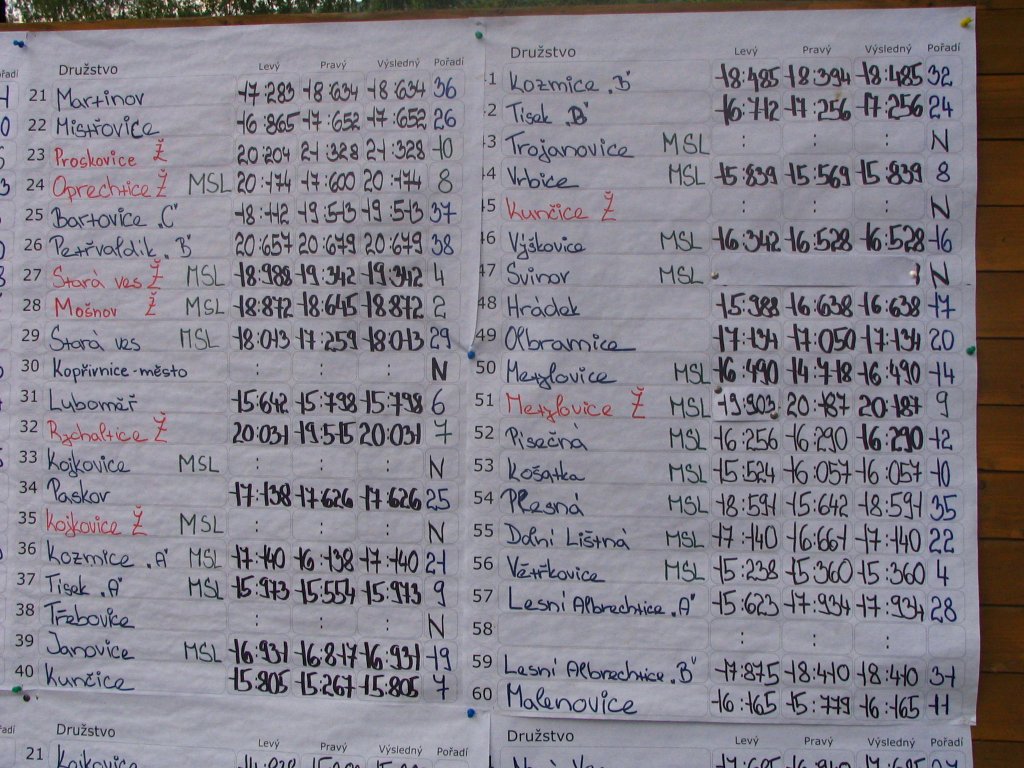 Družstvo Levý Pravý Výsledný Pořadí
21 Martinov 17:283 18:634 18:634 36
22 Mistřovice 16:865 17:652 17:652 26
23 Proskovice Ž 20:204 21:328 21:328 10
24 Oprechtice Ž MSL 20:174 17:600 20:174 8
25 Bartovice „C" 18:112 19:513 19:513 37
26 Petřvaldík „B" 20:657 20:679 20:679 38
27 Stará ves Ž MSL 18:988 19:342 19:342 4
28 Mošnov Ž MSL 18:872 18:645 18:872 2
29 Stará ves MSL 18:013 17:259 18:013 29
30 Kopřivnice-město : : : N
31 Luboměř 15:642 15:798 15:798 6
32 Rychaltice Ž 20:031 19:515 20:031 7
33 Kojkovice MSL : : : N
34 Paskov 17:138 17:626 17:626 25
35 Kojkovice Ž MSL : : : N
36 Kozmice „A" MSL 17:140 16:138 17:140 21
37 Tísek „A" MSL 15:973 15:554 15:973 9
38 Třebovice : : : N
39 Janovice MSL 16:931 16:817 16:931 19
40 Kunčice 15:805 15:267 15:805 7
Družstvo Levý Pravý Výsledný Pořadí
41 Kozmice „B" 18:485 18:394 18:485 32
42 Tísek „B" 16:712 17:256 17:256 24
43 Trojanovice MSL : : : N
44 Vrbice MSL 15:839 15:569 15:839 8
45 Kunčice Ž : : : N
46 Výškovice MSL 16:342 16:528 16:528 16
47 Svinov MSL N
48 Hrádek 15:988 16:638 16:638 17
49 Olbramice 17:134 17:050 17:134 20
50 Metylovice MSL 16:490 14:718 16:490 14
51 Metylovice Ž MSL 19:903 20:187 20:187 9
52 Písečná MSL 16:256 16:290 16:290 12
53 Košatka MSL 15:524 16:057 16:057 10
54 Plesná MSL 18:591 15:642 18:591 35
55 Dolní Lištná MSL 17:140 16:661 17:140 22
56 Větřkovice MSL 15:238 15:360 15:360 4
57 Lesní Albrechtice „A" 15:623 17:934 17:934 28
58 : : :
59 Lesní Albrechtice „B" 17:875 18:410 18:410 31
60 Malenovice 16:165 15:779 16:165 11
Družstvo Levý Pravý Výsledný Pořadí
21 Kojkovice
Družstvo Levý Pravý Výsledný Pořadí